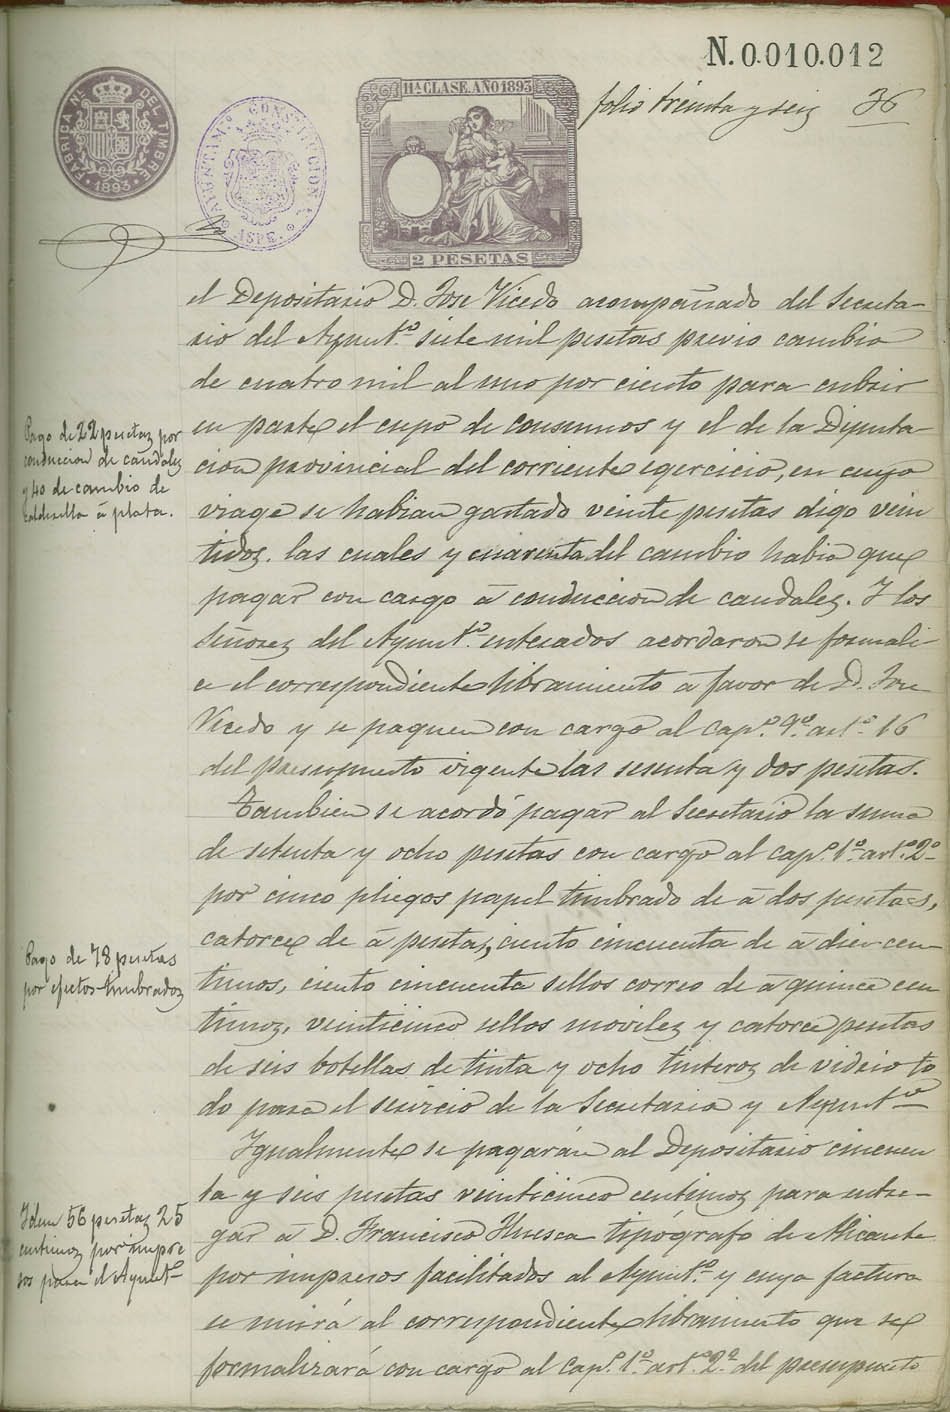 N.0.010.012
FABRICA NL. DEL TIMBRE
1893
AYUNTAM.º CONSTITUCIONAL
ASPE.
11ª CLASE. AÑO 1893
2 PESETAS
folio treinta y seis 36
el Depositario D. Jose Vicedo acompañado del Secreta-
rio del Ayunt.º siete mil pesetas previo cambio
de cuatro mil al uno por ciento para cubrir
en parte el cupo de consumos y el de la Diputa-
cion provincial del corriente egercicio, en cuyo
viage se habian gastado veinte pesetas digo vein
tidos. las cuales y cuarenta del cambio habia que
pagar con cargo á conduccion de caudales. Y los
Señores del Ayunt.º enterados acordaron se formali
ce el correspondiente libramiento a favor de D. Jose
Vicedo y se paguen con cargo al cap.º 9.º art.º 16
del presupuesto vigente las sesenta y dos pesetas.
Tambien se acordó pagar al Secretario la suma
de setenta y ocho pesetas con cargo al cap.º 1.º art.º 2.º
por cinco pliegos papel timbrado de á dos pesetas,
catorce de á peseta, ciento cincuenta de á diez cen
timos, ciento cincuenta sellos correo de á quince cen
timos, veinticinco sellos moviles y catorce pesetas
de seis botellas de tinta y ocho tinteros de vidrio to
do para el servicio de la Secretaria y Ayunt.º
Igualmente se pagarán al Depositario cincuen
ta y seis pesetas veinticinco centimos para entre-
gar á D. Francisco Huesca tipógrafo de Alicante
por impresos facilitados al Ayunt.º y cuya factura
se unirá al correspondiente libramiento que se
formalizará con cargo al Cap.º 1.º art.º 2.º del presupuesto
Pago de 22 pesetas por
conduccion de caudales
y 40 de cambio de
calderilla á plata.
Pago de 78 pesetas
por efectos timbrados
Idem 56 pesetas 25
centimos por impre
sos para el Ayunt.º